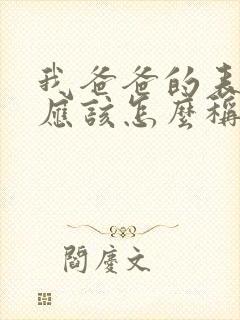 我爸爸的表
應該怎麼稱
閻慶文